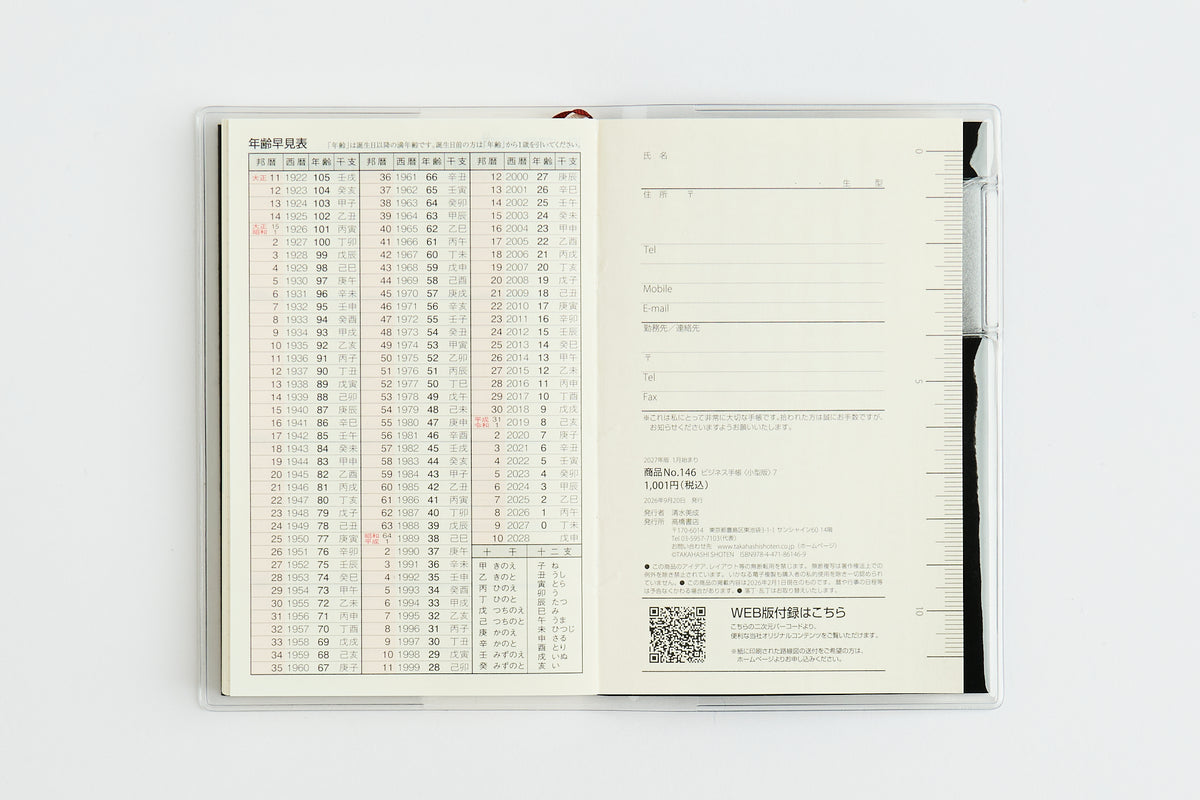 年齢早見表 「年齢」は誕生日以降の満年齢です。誕生日前の方は「年齢」から1歳を引いてください。
邦暦 西暦 年齢 干支 邦暦 西暦 年齢 干支 邦暦 西暦 年齢 干支
大正 11 1922 105 壬戌 36 1961 66 辛丑 12 2000 27 庚辰
12 1923 104 癸亥 37 1962 65 壬寅 13 2001 26 辛巳
13 1924 103 甲子 38 1963 64 癸卯 14 2002 25 壬午
14 1925 102 乙丑 39 1964 63 甲辰 15 2003 24 癸未
大正 15 昭和 1 1926 101 丙寅 40 1965 62 乙巳 16 2004 23 甲申
2 1927 100 丁卯 41 1966 61 丙午 17 2005 22 乙酉
3 1928 99 戊辰 42 1967 60 丁未 18 2006 21 丙戌
4 1929 98 己巳 43 1968 59 戊申 19 2007 20 丁亥
5 1930 97 庚午 44 1969 58 己酉 20 2008 19 戊子
6 1931 96 辛未 45 1970 57 庚戌 21 2009 18 己丑
7 1932 95 壬申 46 1971 56 辛亥 22 2010 17 庚寅
8 1933 94 癸酉 47 1972 55 壬子 23 2011 16 辛卯
9 1934 93 甲戌 48 1973 54 癸丑 24 2012 15 壬辰
10 1935 92 乙亥 49 1974 53 甲寅 25 2013 14 癸巳
11 1936 91 丙子 50 1975 52 乙卯 26 2014 13 甲午
12 1937 90 丁丑 51 1976 51 丙辰 27 2015 12 乙未
13 1938 89 戊寅 52 1977 50 丁巳 28 2016 11 丙申
14 1939 88 己卯 53 1978 49 戊午 29 2017 10 丁酉
15 1940 87 庚辰 54 1979 48 己未 30 2018 9 戊戌
16 1941 86 辛巳 55 1980 47 庚申 平成 31 令和 1 2019 8 己亥
17 1942 85 壬午 56 1981 46 辛酉 2 2020 7 庚子
18 1943 84 癸未 57 1982 45 壬戌 3 2021 6 辛丑
19 1944 83 甲申 58 1983 44 癸亥 4 2022 5 壬寅
20 1945 82 乙酉 59 1984 43 甲子 5 2023 4 癸卯
21 1946 81 丙戌 60 1985 42 乙丑 6 2024 3 甲辰
22 1947 80 丁亥 61 1986 41 丙寅 7 2025 2 乙巳
23 1948 79 戊子 62 1987 40 丁卯 8 2026 1 丙午
24 1949 78 己丑 63 1988 39 戊辰 9 2027 0 丁未
25 1950 77 庚寅 昭和 64 平成 1 1989 38 己巳 10 2028 戊申
26 1951 76 辛卯 2 1990 37 庚午
27 1952 75 壬辰 3 1991 36 辛未
28 1953 74 癸巳 4 1992 35 壬申
29 1954 73 甲午 5 1993 34 癸酉
30 1955 72 乙未 6 1994 33 甲戌
31 1956 71 丙申 7 1995 32 乙亥
32 1957 70 丁酉 8 1996 31 丙子
33 1958 69 戊戌 9 1997 30 丁丑
34 1959 68 己亥 10 1998 29 戊寅
35 1960 67 庚子 11 1999 28 己卯
十干 十二支
甲 きのえ
乙 きのと
丙 ひのえ
丁 ひのと
戊 つちのえ
己 つちのと
庚 かのえ
辛 かのと
壬 みずのえ
癸 みずのと
子 ね
丑 うし
寅 とら
卯 う
辰 たつ
巳 み
午 うま
未 ひつじ
申 さる
酉 とり
戌 いぬ
亥 い
氏 名
. . 生 型
住 所 〒
Tel
Mobile
E-mail
勤務先／連絡先
〒
Tel
Fax
※これは私にとって非常に大切な手帳です。拾われた方は誠にお手数ですが、
お知らせくださいますようお願いいたします。
2027年版 1月始まり
商品No.146 ビジネス手帳〈小型版〉7
1,001円（税込）
2026年9月20日 発行
発行者 清水美成
発行所 高橋書店
〒170-6014 東京都豊島区東池袋3-1-1 サンシャイン60 14階
Tel 03-5957-7103（代表）
お問い合わせ先 www.takahashishoten.co.jp（ホームページ）
©TAKAHASHI SHOTEN ISBN978-4-471-86146-9
● この商品のアイデア、レイアウト等の無断転用を禁じます。 無断複写は著作権法上での
例外を除き禁止されています。 いかなる電子複製も購入者の私的使用を除き一切認められ
ていません。 ● この商品の掲載内容は2026年2月1日現在のものです。 暦や行事の日程等
は予告なくかわる場合があります。 ● 落丁・乱丁はお取り替えいたします。
WEB版付録はこちら
こちらの二次元バーコードより、
便利な当社オリジナルコンテンツをご覧いただけます。
※紙に印刷された路線図の送付をご希望の方は、
ホームページよりお申し込みください。
0
5
10